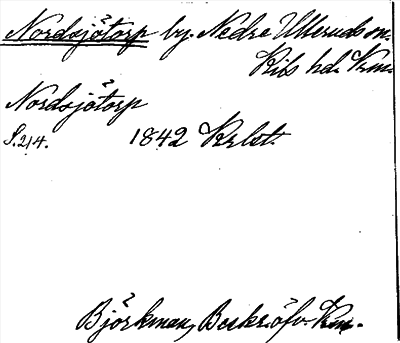 Nordsjötorp by. Nedre Ulleruds sn.
Kils hd. Krm.
Nordsjötorp
S. 214. 1842 Krlst.
Björkman, Beskr. öfv. Krm.